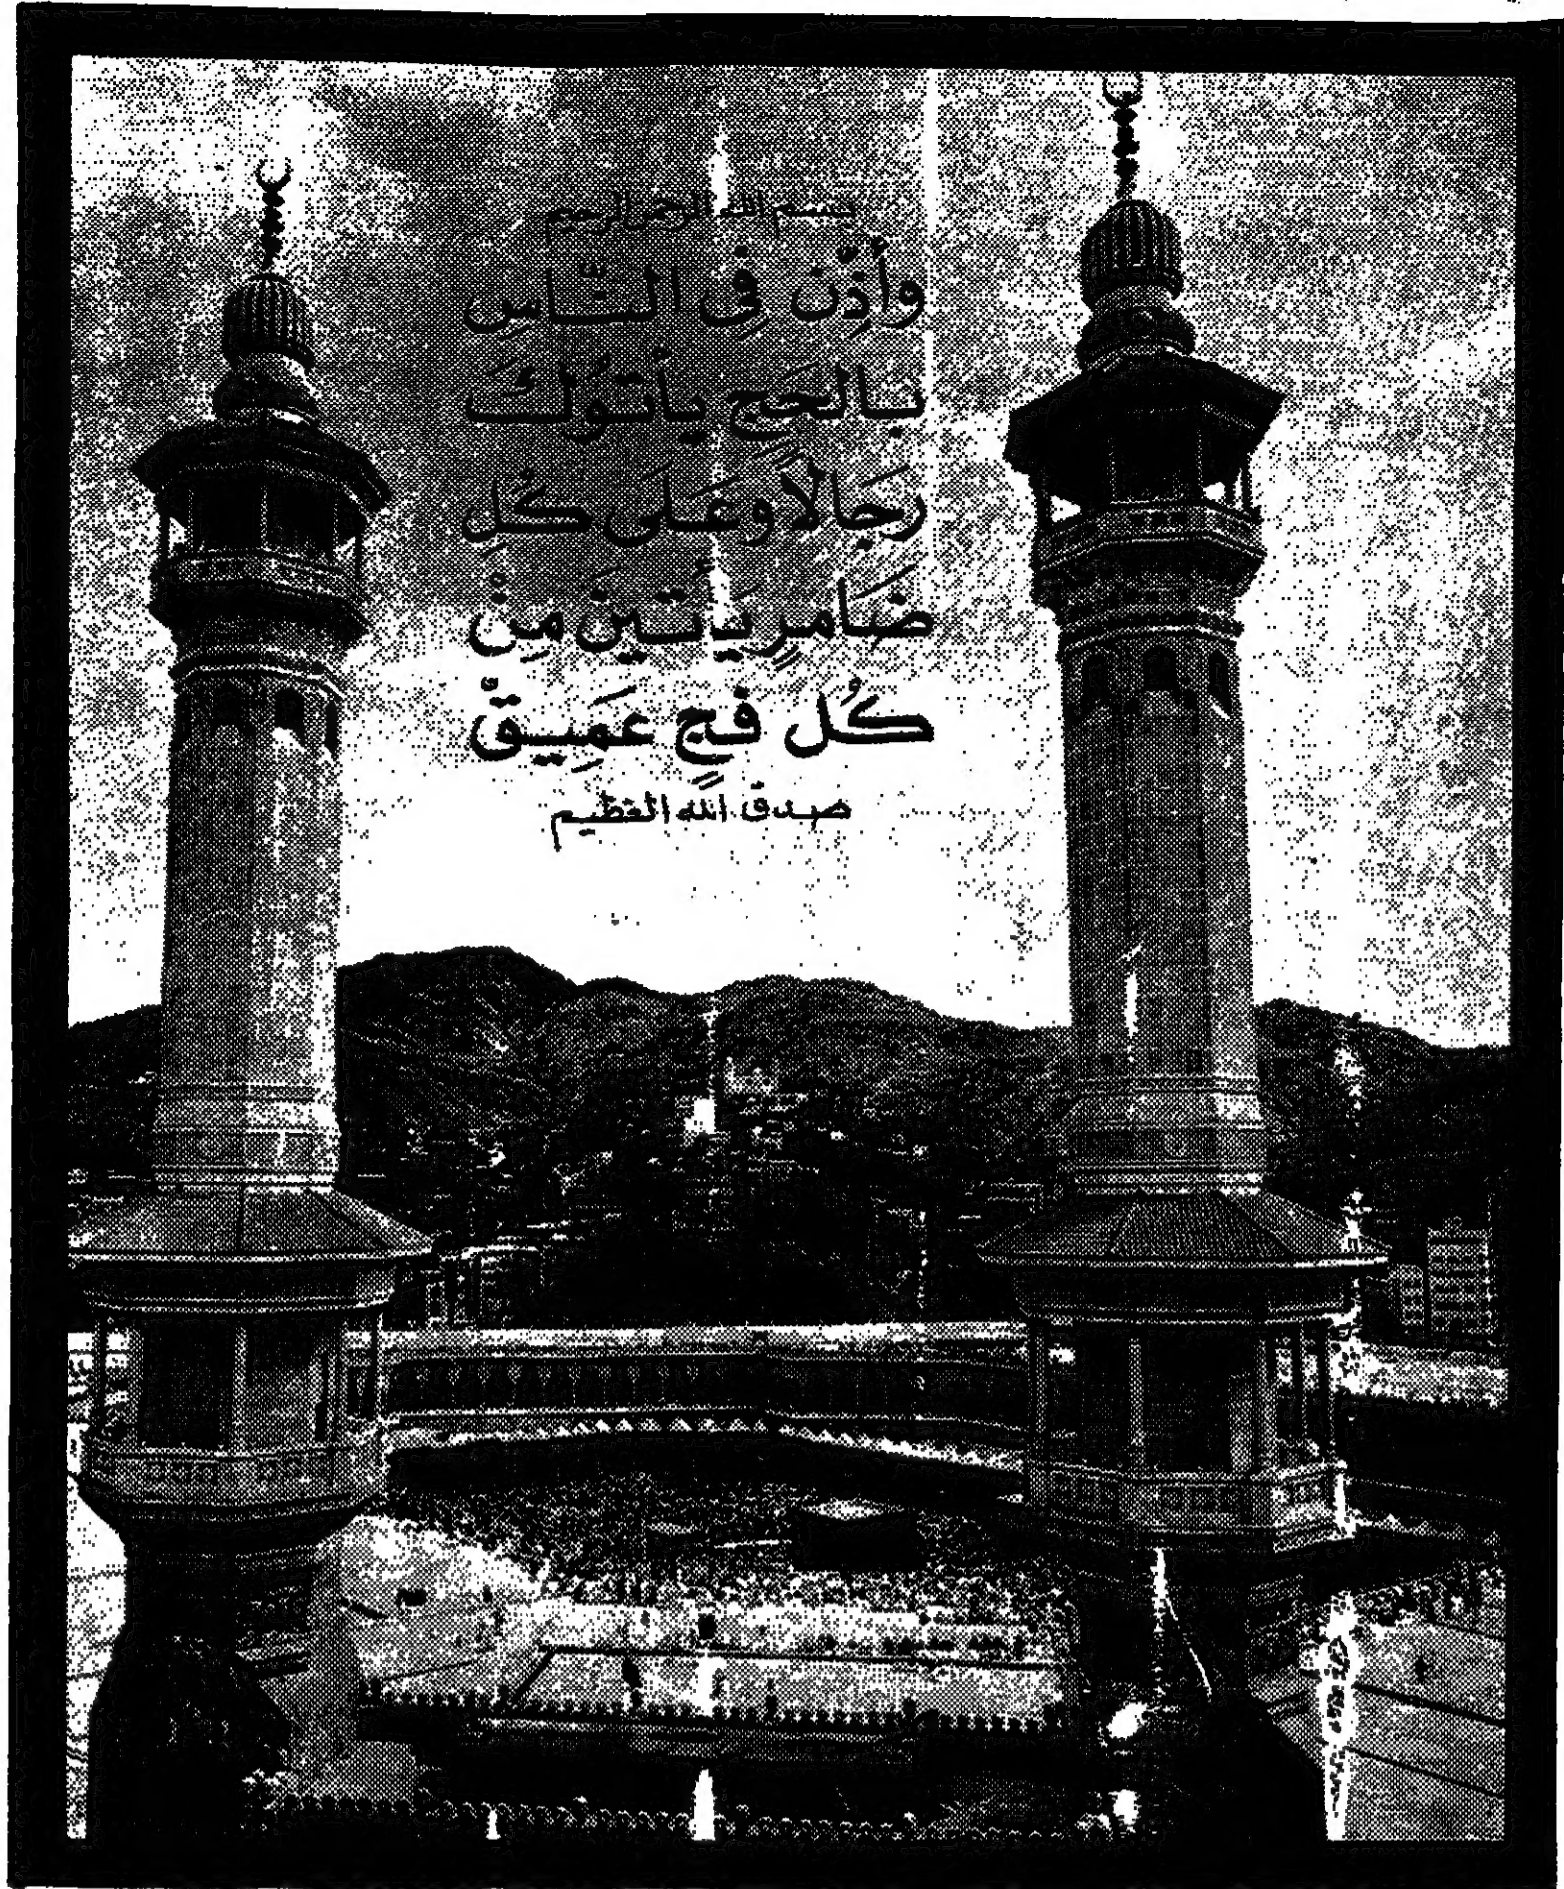 بسم الله الرحمن الرحيم
وأَذِّن فِى النَّاسِ
بِالحَجِّ يأتوُكَ
رِجَالاً وعَلَى كُلِ
ضَامِرٍ يَأتينَ مِنْ
كُل فجٍ عَمِيقٍّ
صدق الله العظيم